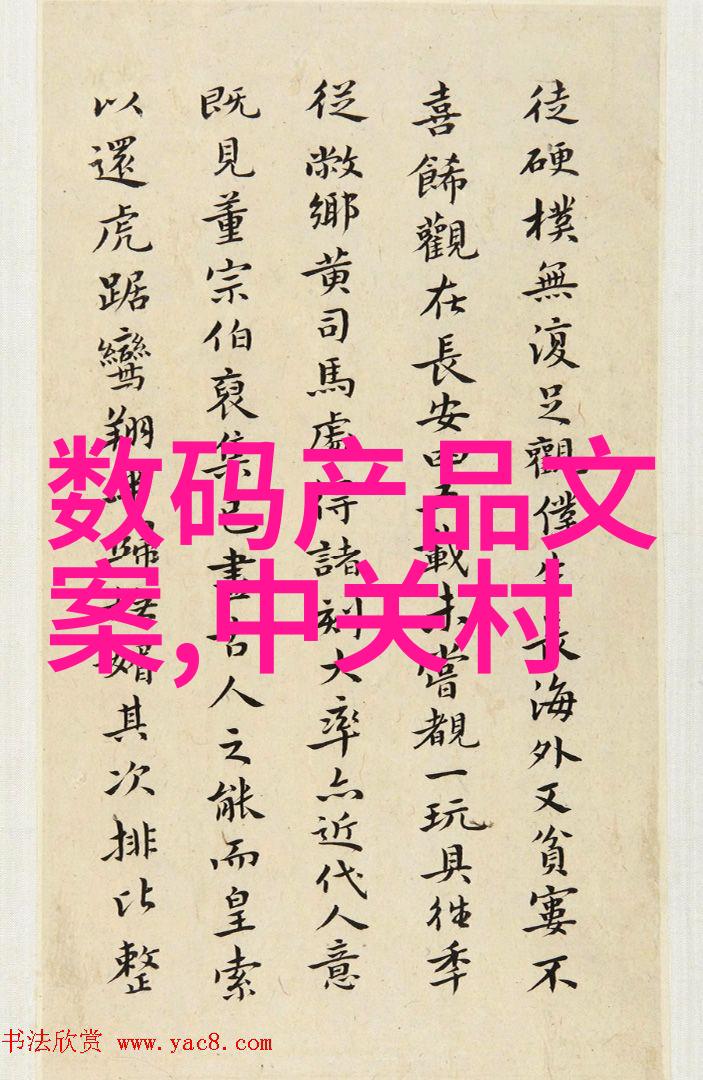 徒硬樸無復足觀僕生長海外又貧窶不
喜餙觀在長安四載未嘗覩一玩具往季
從敝鄉黄司馬處得諸刻大率亦近代人意
既見董宗伯裒集已書古人之能而皇索
以還虎踞鸞翔其次排比整
数码产品文
案,中关村
书法欣赏 www.yac8.com